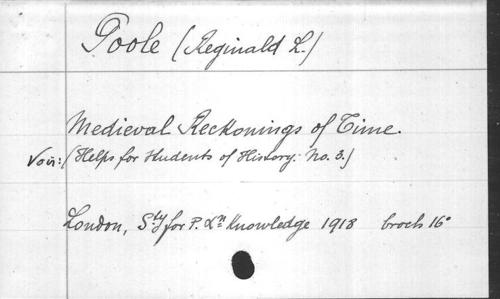 Poole (Reginald L.)
Medieval Reckonings of Time.
Voir: (Helps for Students of History. No. 3.)
London, Sty for P. Xn Knowledge 1918 broch 16°